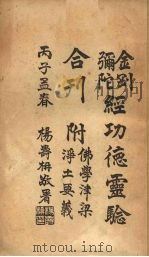 金剛
彌陀
經功德靈驗
合刊
附
佛學津梁
淨土要義
丙子孟春
楊壽枏敬署